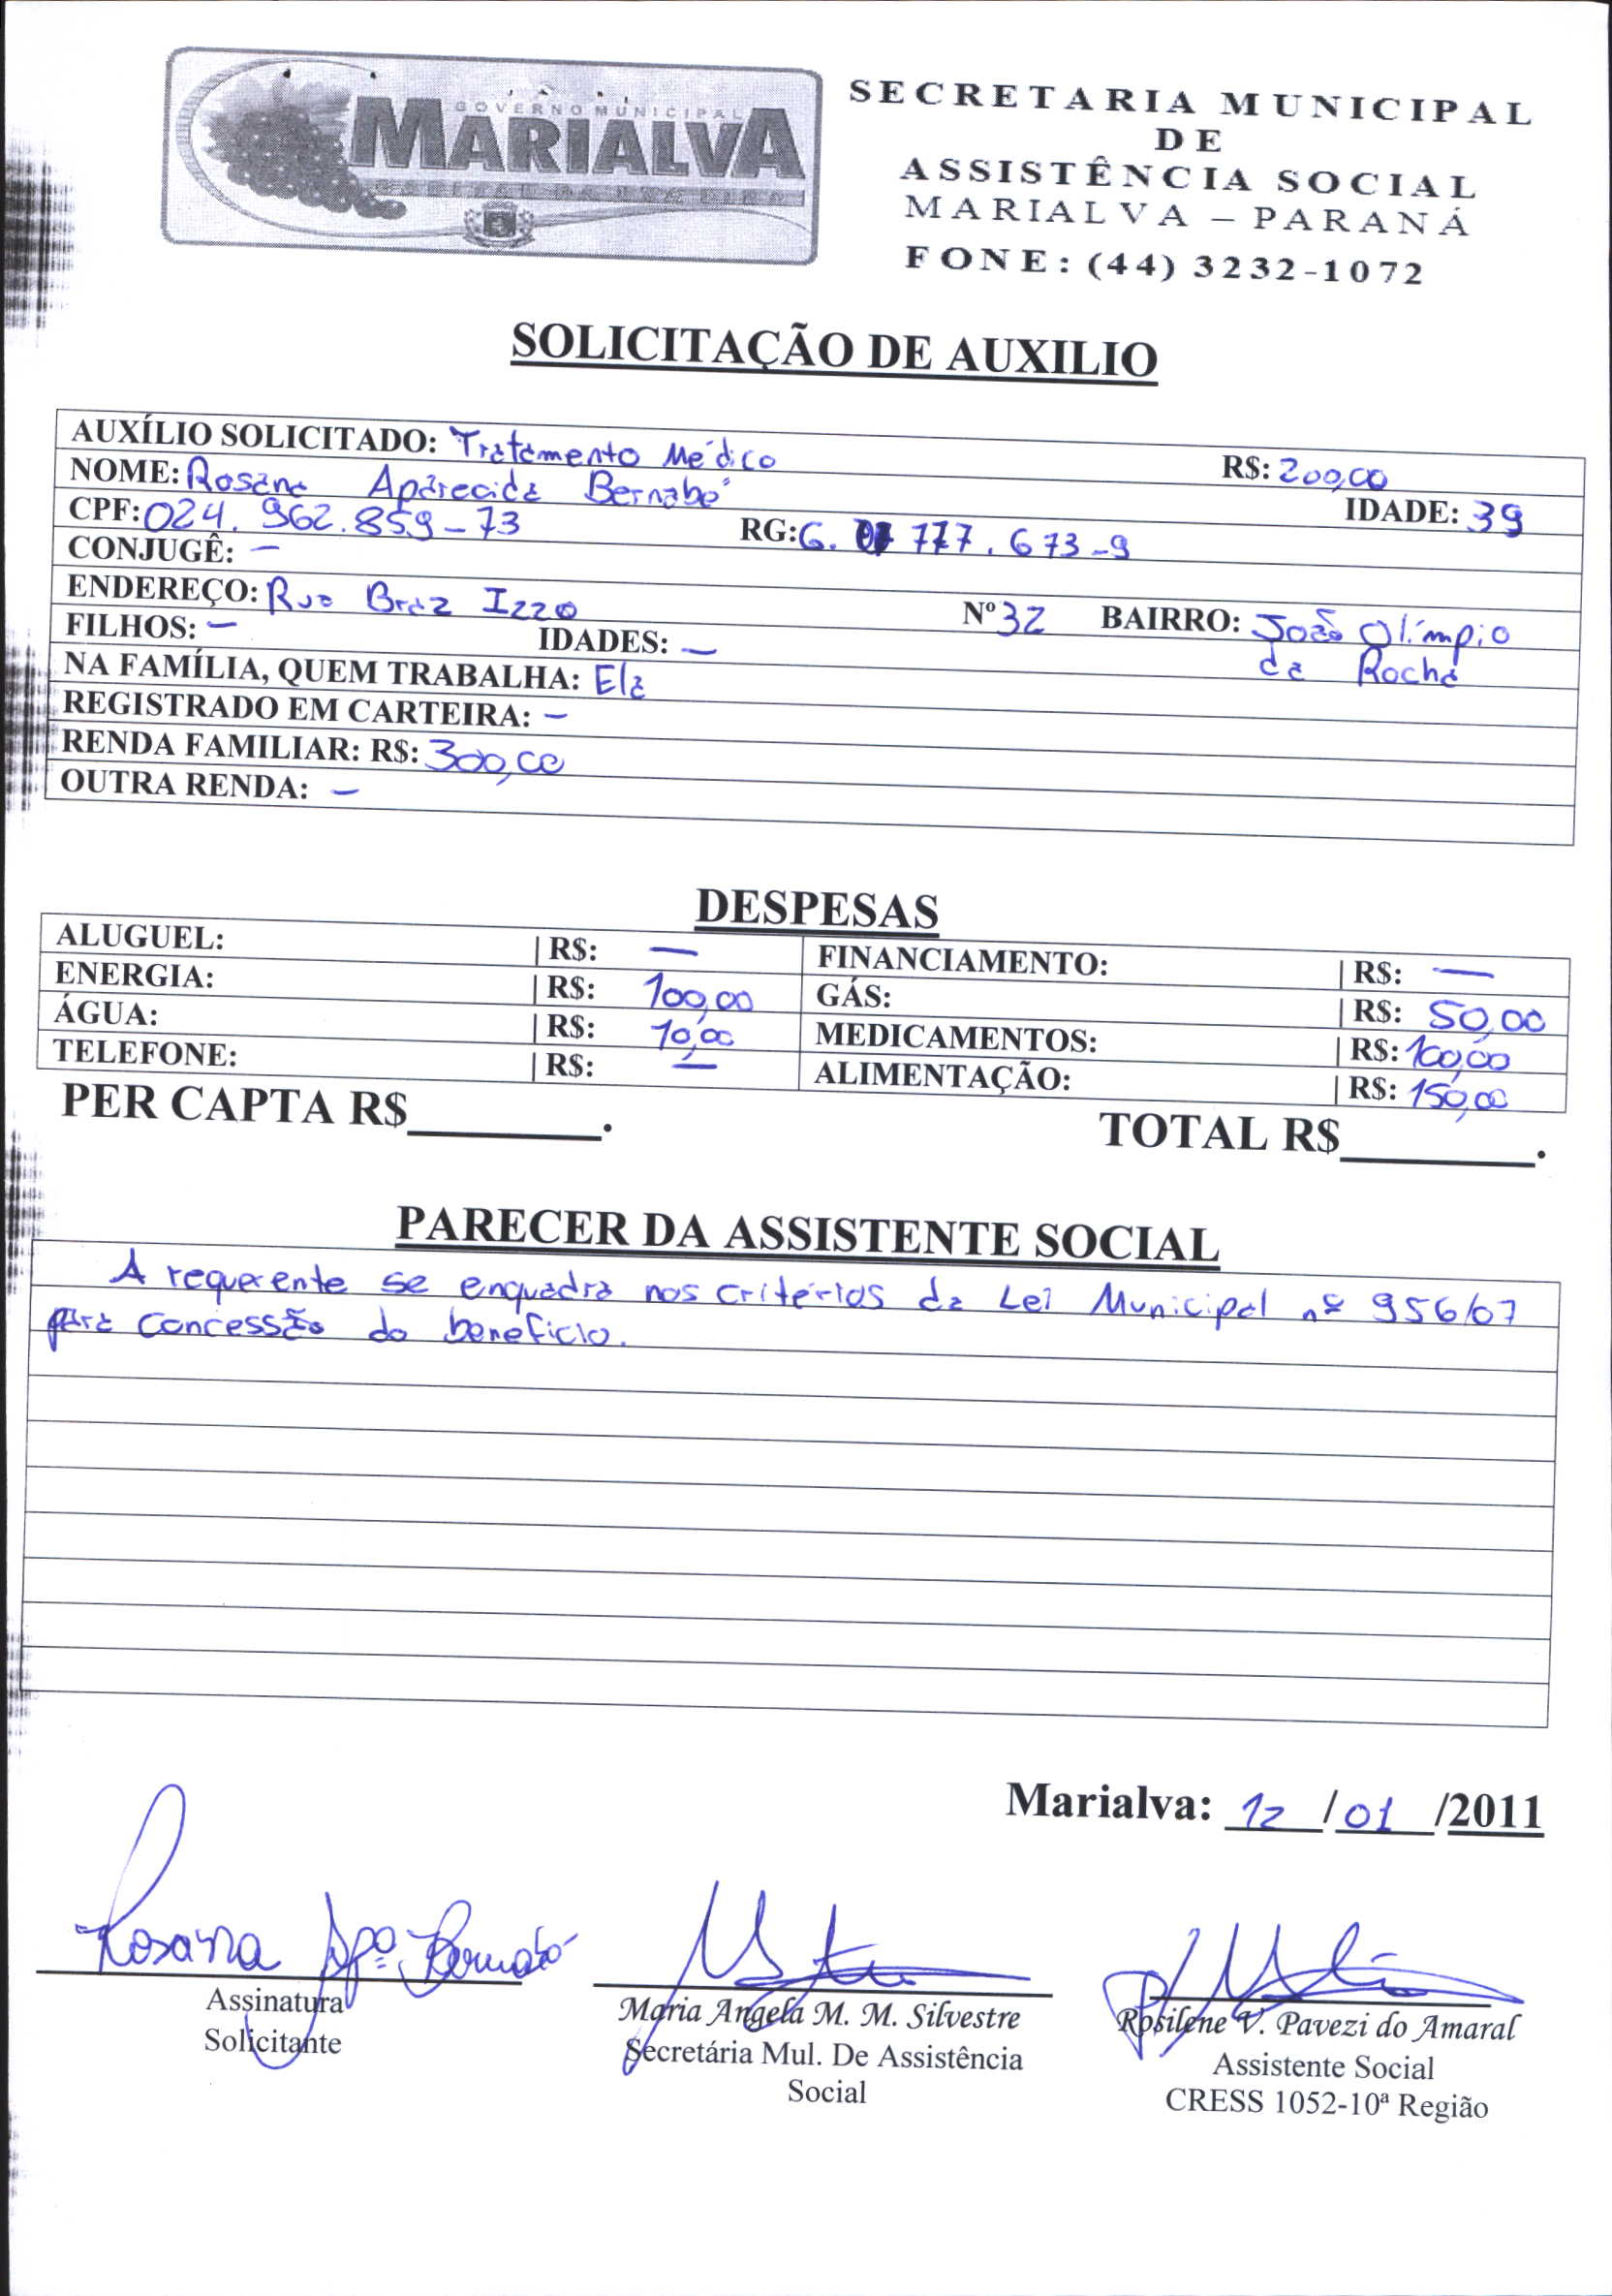 GOVERNO MUNICIPAL
MARIALVA
SECRETARIA MUNICIPAL
DE
ASSISTÊNCIA SOCIAL
MARIALVA – PARANÁ
FONE: (44) 3232-1072
SOLICITAÇÃO DE AUXILIO
AUXÍLIO SOLICITADO: Tratamento Médico R$: 200,00
NOME: Rosana Aparecida Bernabé IDADE: 39
CPF: 024.962.859-73 RG: 6. 777.673-9
CONJUGÊ: —
ENDEREÇO: Rua Braz Izzo Nº 32 BAIRRO: João Olímpio
da Rocha
FILHOS: — IDADES: —
NA FAMÍLIA, QUEM TRABALHA: Ela
REGISTRADO EM CARTEIRA: —
RENDA FAMILIAR: R$: 300,00
OUTRA RENDA: —
DESPESAS
ALUGUEL: | R$: — FINANCIAMENTO: | R$: —
ENERGIA: | R$: 100,00 GÁS: | R$: 50,00
ÁGUA: | R$: 10,00 MEDICAMENTOS: | R$: 100,00
TELEFONE: | R$: — ALIMENTAÇÃO: | R$: 150,00
PER CAPTA R$________. TOTAL R$________.
PARECER DA ASSISTENTE SOCIAL
A requerente se enquadra nos critérios da Lei Municipal nº 956/07
para concessão do benefício.
Marialva: 12/01/2011
Rosana Apª. Bernabé
Assinatura
Solicitante
Maria Angela M. M. Silvestre
Secretária Mul. De Assistência
Social
Rosilene V. Pavezi do Amaral
Assistente Social
CRESS 1052-10ª Região